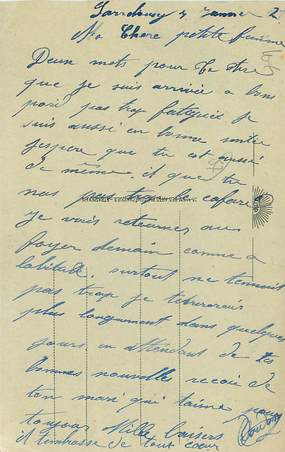 Sarrebourg 4 Janvier 2
Ma Chere petite femme
Deux mots pour te dire
que je suis arrivée a bon
port pas trop fatiguée je
suis aussi en bonne santer
jespere que tu est aussi
de même. et que tu
nas pas trop le cafard
je vais retourner au
foyer demain comme a
labitude. surtout ne tennuit
pas trop je técrirerais
plus longuement dans quelques
jours en attendant de tes
bonnes nouvelles recoi de
ton mari qui taime pour
toujour Mille baisers
il tembrasse de tout coeur